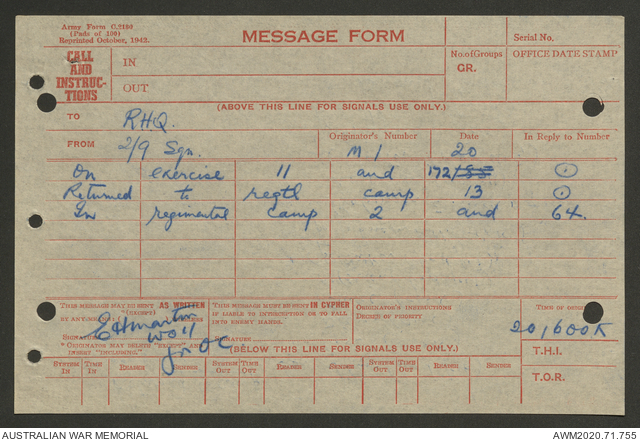 Army Form C.2180
(Pads of 100)
Reprinted October, 1942.
MESSAGE FORM
Serial No.
CALL AND INSTRUC-TIONS
IN
OUT
No. of Groups
GR.
OFFICE DATE STAMP
(ABOVE THIS LINE FOR SIGNALS USE ONLY.)
TO RHQ.
FROM 2/9 Sqn.
Originator's Number M1
Date 20
In Reply to Number
On exercise 11 and 172/
Returned to regtl camp 13
In regimental camp 2 and 64.
THIS MESSAGE MAY BE SENT AS WRITTEN
(EXCEPT)
BY ANY MEANS WIRELESS
THIS MESSAGE MUST BE SENT IN CYPHER
IF LIABLE TO INTERCEPTION OR TO FALL
INTO ENEMY HANDS.
ORIGINATOR'S INSTRUCTIONS
DEGREE OF PRIORITY
TIME OF ORIGIN
201600K
SIGNATURE EHMartin
WO II
for OC
SIGNATURE
* ORIGINATOR MAY DELETE "EXCEPT" AND
INSERT "INCLUDING."
(BELOW THIS LINE FOR SIGNALS USE ONLY.)
T.H.I.
SYSTEM IN TIME IN READER SENDER SYSTEM OUT TIME OUT READER SENDER SYSTEM OUT TIME OUT READER SENDER
T.O.R.
AUSTRALIAN WAR MEMORIAL
AWM2020.71.755